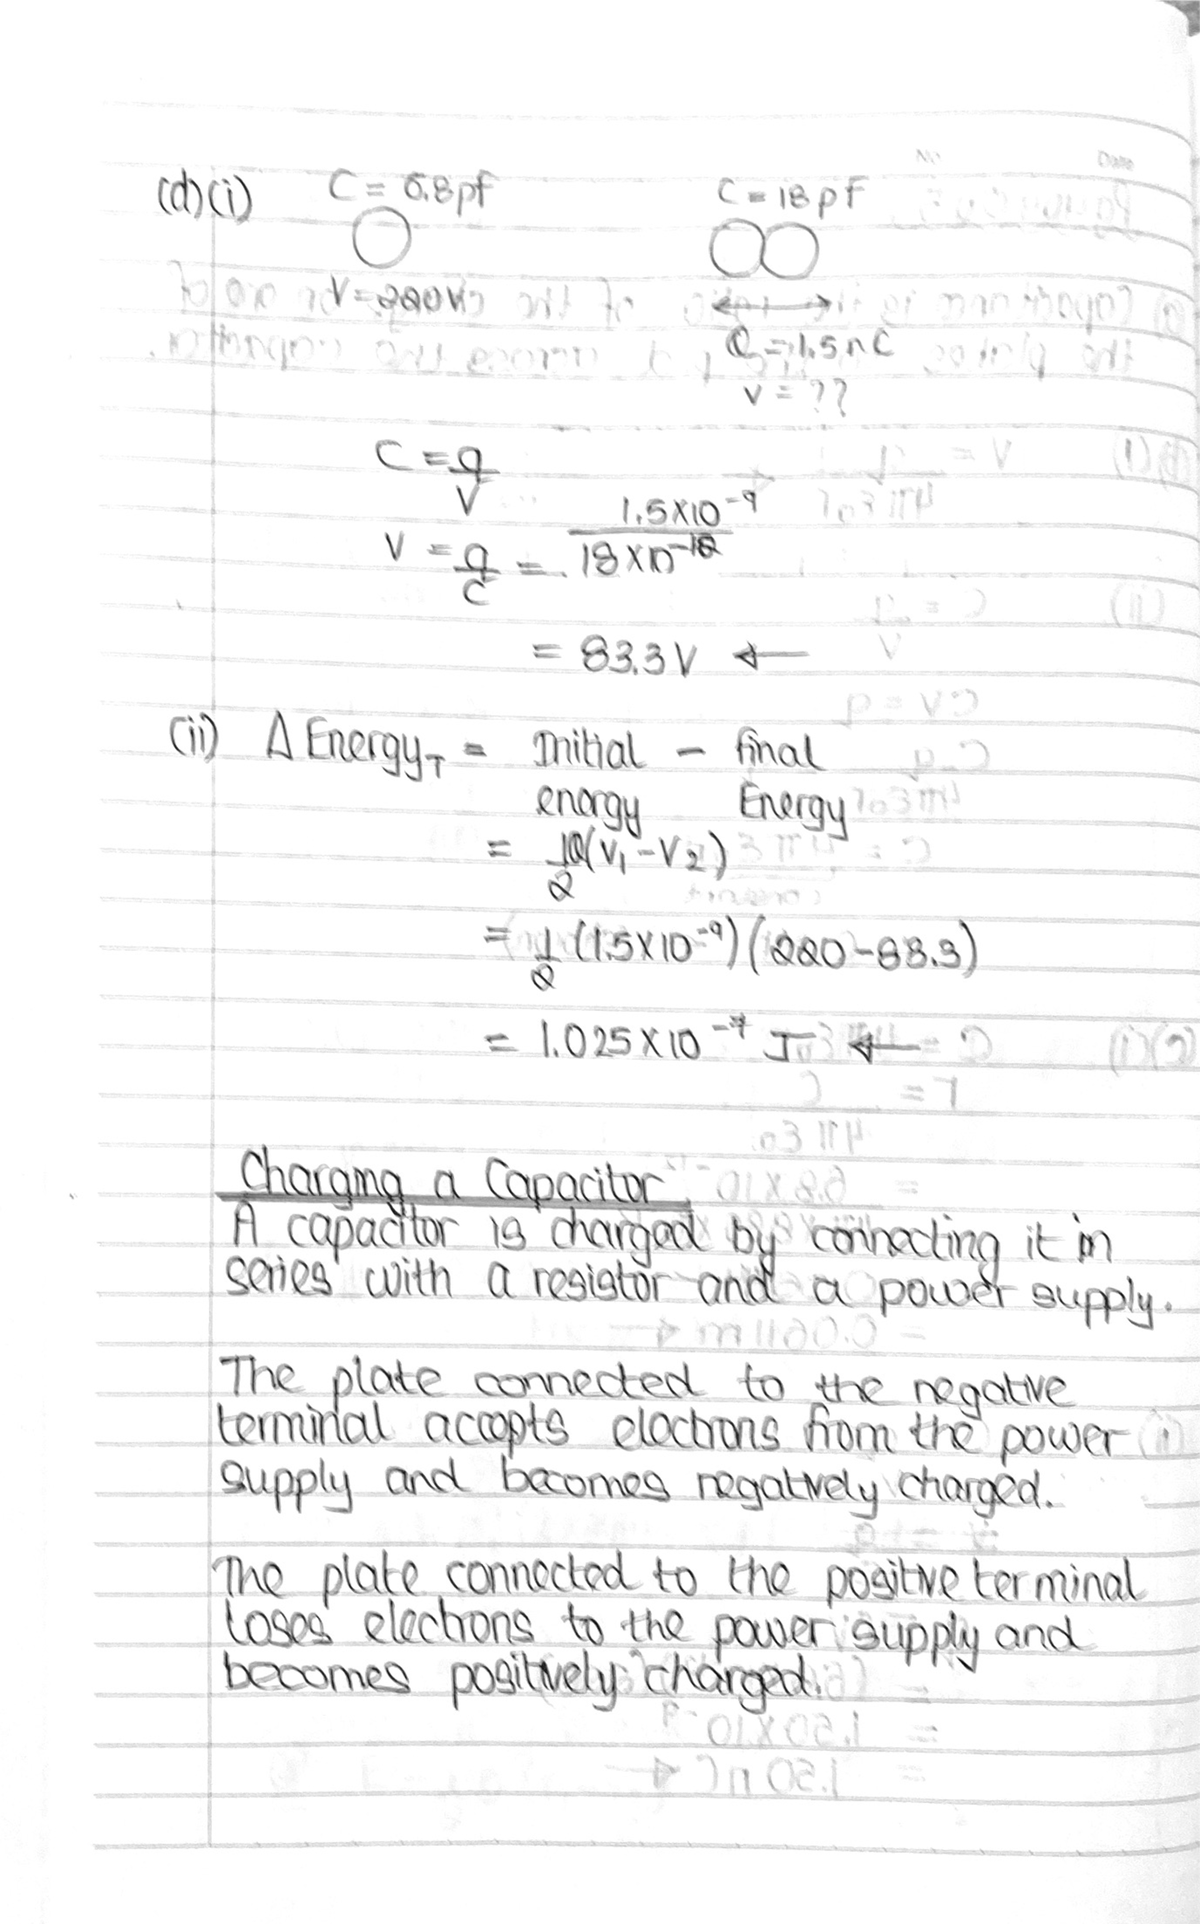 No Date
(d)(i) C = 6.8pf C = 18pf
V=220V
Q=1.5nC
V = ??
C = q/V
V = q/C = 1.5×10⁻⁹/18×10⁻¹²
= 83.3V ←
(ii) Δ Energy_T = Initial energy - final Energy
= 1/2 Q(V₁-V₂)
= 1/2 (1.5×10⁻⁹)(220-83.3)
= 1.025×10⁻⁷ J ←
Charging a Capacitor
A capacitor is charged by connecting it in
series with a resistor and a power supply.
The plate connected to the negative
terminal accepts electrons from the power
supply and becomes negatively charged.
The plate connected to the positive terminal
loses electrons to the power supply and
becomes positively charged.